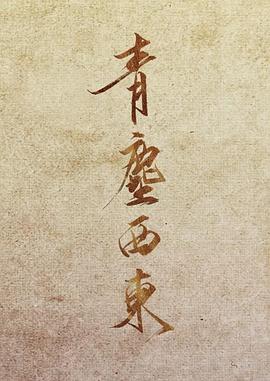 青塵西東